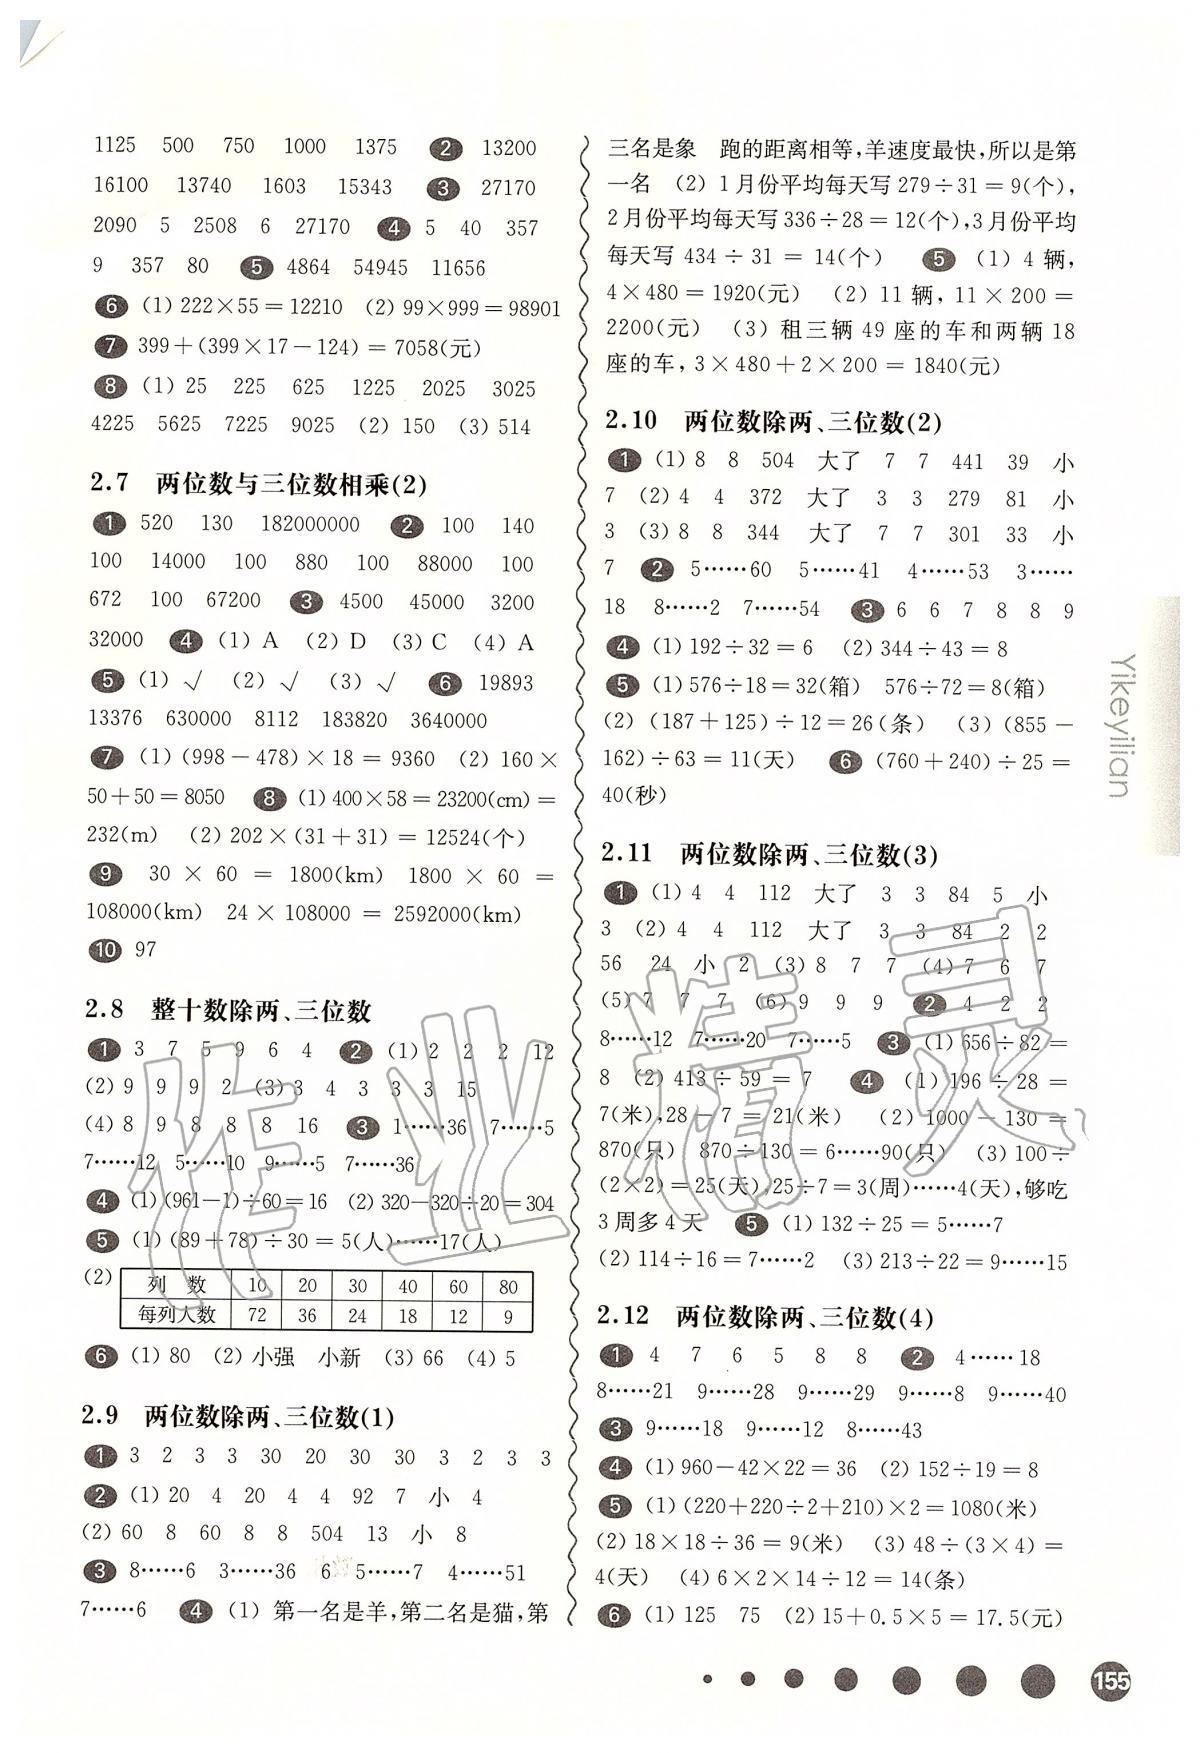 1125 500 750 1000 1375 2 13200
16100 13740 1603 15343 3 27170
2090 5 2508 6 27170 4 5 40 357
9 357 80 5 4864 54945 11656
6 (1) 222×55=12210 (2) 99×999=98901
7 399+(399×17-124)=7058(元)
8 (1) 25 225 625 1225 2025 3025
4225 5625 7225 9025 (2) 150 (3) 514
2.7 两位数与三位数相乘(2)
1 520 130 182000000 2 100 140
100 14000 100 880 100 88000 100
672 100 67200 3 4500 45000 3200
32000 4 (1) A (2) D (3) C (4) A
5 (1) √ (2) √ (3) √ 6 19893
13376 630000 8112 183820 3640000
7 (1) (998-478)×18=9360 (2) 160×
50+50=8050 8 (1) 400×58=23200(cm)=
232(m) (2) 202×(31+31)=12524(个)
9 30×60=1800(km) 1800×60=
108000(km) 24×108000=2592000(km)
10 97
2.8 整十数除两、三位数
1 3 7 5 9 6 4 2 (1) 2 2 2 12
(2) 9 9 9 2 (3) 3 4 3 3 3 15
(4) 8 9 8 8 8 16 3 1……36 7……5
7……12 5……10 9……5 7……36
4 (1) (961-1)÷60=16 (2) 320-320÷20=304
5 (1) (89+78)÷30=5(人)……17(人)
(2) 列 数 10 20 30 40 60 80
每列人数 72 36 24 18 12 9
6 (1) 80 (2) 小强 小新 (3) 66 (4) 5
2.9 两位数除两、三位数(1)
1 3 2 3 3 30 20 30 30 3 2 3 3
2 (1) 20 4 20 4 4 92 7 小 4
(2) 60 8 60 8 8 504 13 小 8
3 8……6 3……36 6 5……7 4……51
7……6 4 (1) 第一名是羊,第二名是猫,第
三名是象 跑的距离相等,羊速度最快,所以是第
一名 (2) 1月份平均每天写279÷31=9(个),
2月份平均每天写336÷28=12(个),3月份平均
每天写434÷31=14(个) 5 (1) 4辆,
4×480=1920(元) (2) 11辆,11×200=
2200(元) (3) 租三辆49座的车和两辆18
座的车,3×480+2×200=1840(元)
2.10 两位数除两、三位数(2)
1 (1) 8 8 504 大了 7 7 441 39 小
7 (2) 4 4 372 大了 3 3 279 81 小
3 (3) 8 8 344 大了 7 7 301 33 小
7 2 5……60 5……41 4……53 3……
18 8……2 7……54 3 6 6 7 8 8 9
4 (1) 192÷32=6 (2) 344÷43=8
5 (1) 576÷18=32(箱) 576÷72=8(箱)
(2) (187+125)÷12=26(条) (3) (855-
162)÷63=11(天) 6 (760+240)÷25=
40(秒)
2.11 两位数除两、三位数(3)
1 (1) 4 4 112 大了 3 3 84 5 小
3 (2) 4 4 112 大了 3 3 84 2 2
56 24 小 2 (3) 8 7 7 (4) 7 6 7
(5) 7 7 7 (6) 9 9 9 2 4 2 2
8……12 7……20 7……5 3 (1) 656÷82=
8 (2) 413÷59=7 4 (1) 196÷28=
7(米),28-7=21(米) (2) 1000-130=
870(只) 870÷130=6……90(只) (3) 100÷
(2×2)=25(天),25÷7=3(周)……4(天),够吃
3周多4天 5 (1) 132÷25=5……7
(2) 114÷16=7……2 (3) 213÷22=9……15
2.12 两位数除两、三位数(4)
1 4 7 6 5 8 8 2 4……18
8……21 9……28 9……29 9……8 9……40
3 9……18 9……12 8……43
4 (1) 960-42×22=36 (2) 152÷19=8
5 (1) (220+220÷2+210)×2=1080(米)
(2) 18×18÷36=9(米) (3) 48÷(3×4)=
4(天) (4) 6×2×14÷12=14(条)
6 (1) 125 75 (2) 15+0.5×5=17.5(元)
Yikeyilian
155
作业精灵